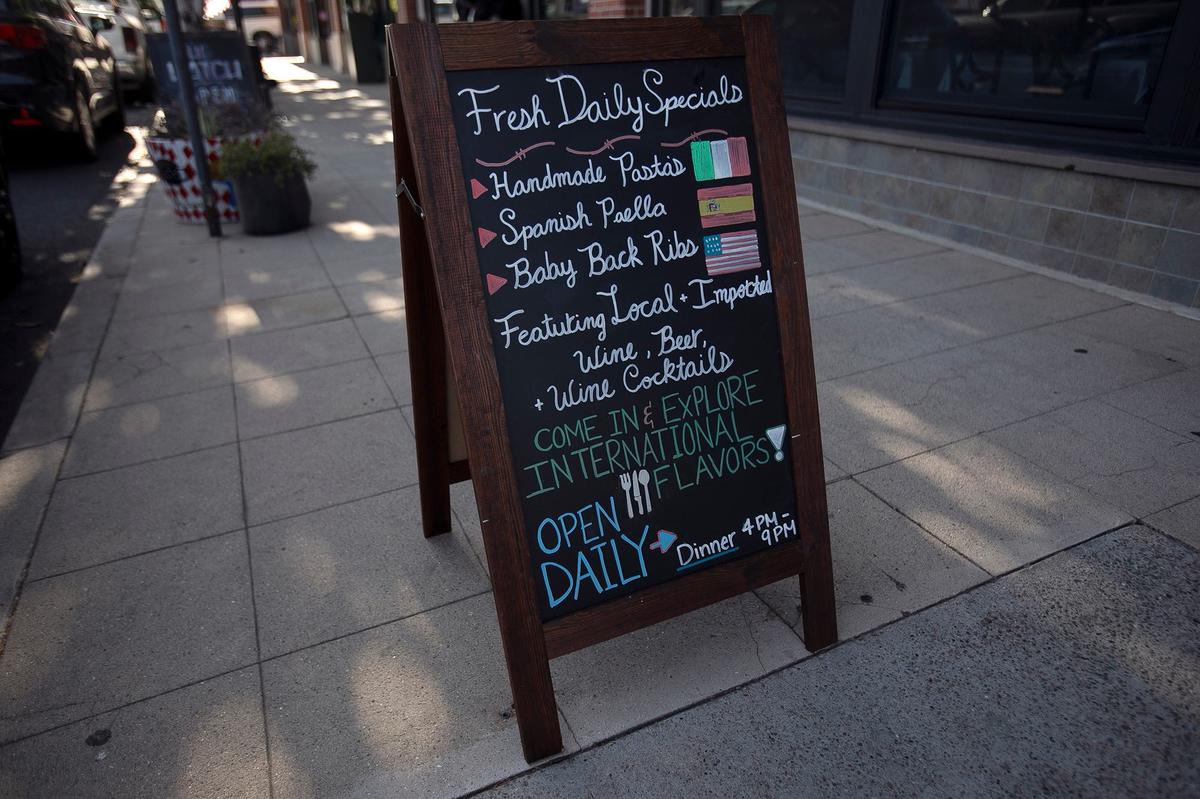 Fresh Daily Specials
Handmade Pastas
Spanish Paella
Baby Back Ribs
Featuring Local + Imported
Wine, Beer,
+ Wine Cocktails
COME IN & EXPLORE
INTERNATIONAL
FLAVORS!
OPEN
DAILY
Dinner 4PM-
9PM